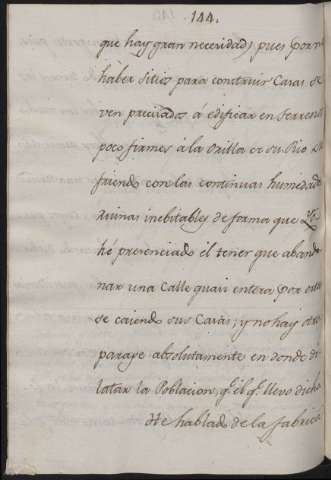 144.
que hay gran necesidad, pues por no
haber sitios para construir Casas se
ven precisados á edificar en terrenos
poco firmes á la Orilla de su Rio su
friendo con las continuas humedades
ruinas inebitables de forma que Yo
hé presenciado el tener que abando
nar una Calle quasi entera por estar
se caiendo sus Casas; y no hay otro
paraje absolutamente en donde di
latar la Poblacion, q.e el q.e llevo dicho
He hablado de la fabrica